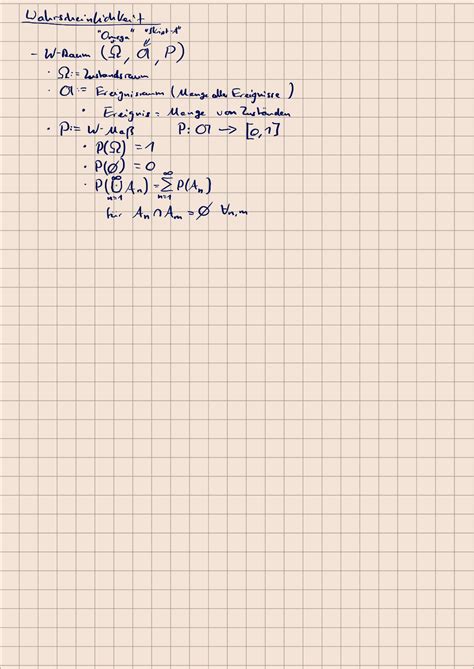 Wahrscheinlichkeit
"Omega" "Skript-A"
- W-Raum (Ω, 𝒜, P)
· Ω := Zustandsraum
· 𝒜 := Ereignisraum (Menge aller Ereignisse)
· Ereignis = Menge von Zuständen
· P := W-Maß P: 𝒜 → [0,1]
· P(Ω) = 1
· P(∅) = 0
· P(⋃_{n=1}^∞ A_n) = ∑_{n=1}^∞ P(A_n)
für A_n ∩ A_m = ∅ ∀n,m